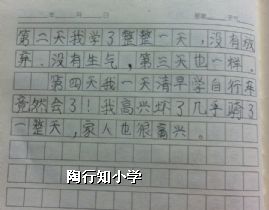 年 月 日
第二天我学了整整一天，没有放
弃，没有生气。第三天也一样。
第四天我一天清早学自行车
竟然会了！我高兴坏了几乎骑了
一整天，家人也很高兴。
陶行知小学